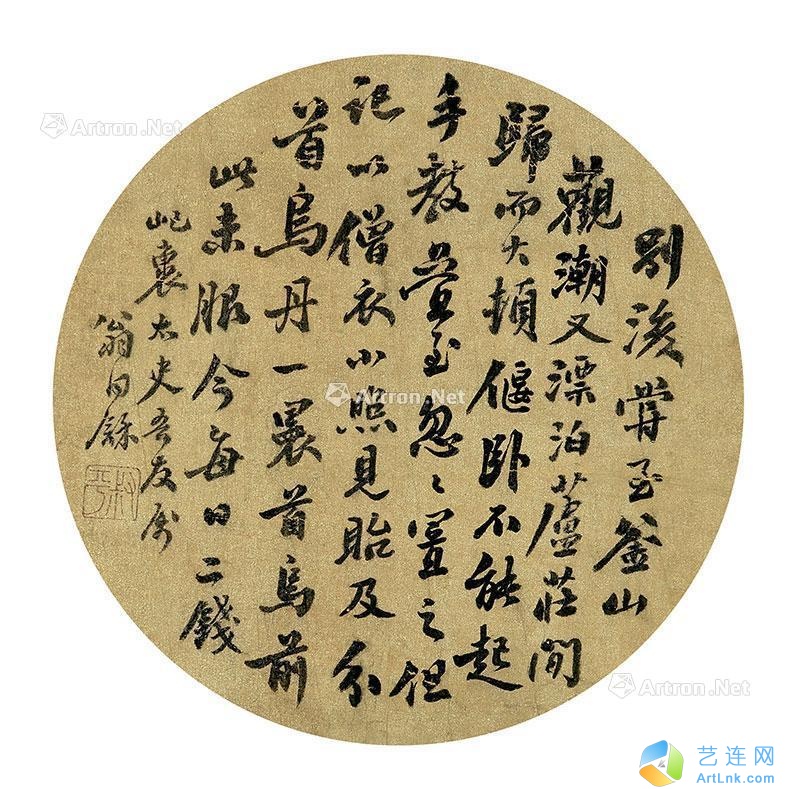 别後嘗至釜山
觀潮又漂泊蘆莊間
歸而大頓偃卧不能起
手教叠至忽々置之但
記以僧衣小照見貽及分
首烏丹一裹首烏前
此未服今每日二錢
屺褱太史吾友属
翁同龢
Artron.Net
Artron.Net
Artron.Net
艺连网
ArtLnk.com